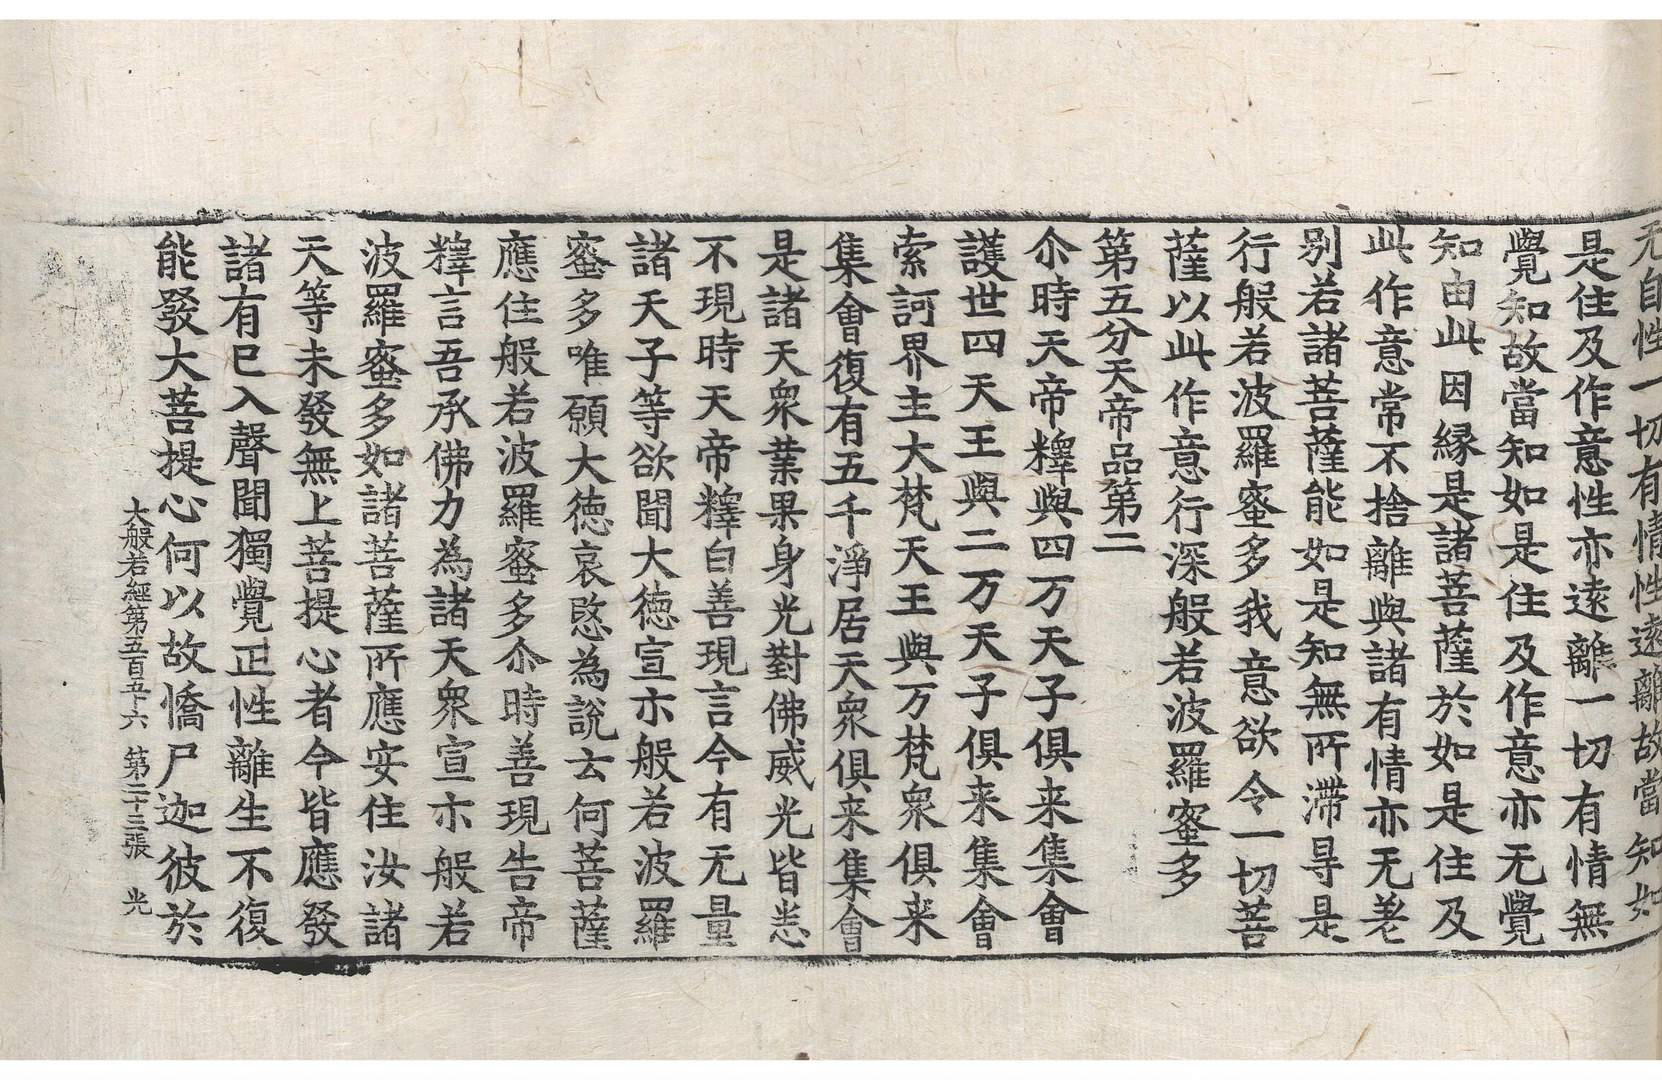 无自性一切有情性遠離故當知如
是住及作意性亦遠離一切有情無
覺知故當知如是住及作意亦无覺
知由此因縁是諸菩薩於如是住及
此作意常不捨離與諸有情亦无差
別若諸菩薩能如是知無所滯㝵是
行般若波羅蜜多我意欲令一切菩
薩以此作意行深般若波羅蜜多
第五分天帝品第二
尒時天帝釋與四万天子俱来集會
護世四天王與二万天子俱来集會
索訶界主大梵天王與万梵衆俱来
集會復有五千淨居天衆俱来集會
是諸天衆業果身光對佛威光皆悉
不現時天帝釋白善現言今有无量
諸天子等欲聞大徳宣示般若波羅
蜜多唯願大徳哀愍為說云何菩薩
應住般若波羅蜜多尒時善現告帝
釋言吾承佛力為諸天衆宣示般若
波羅蜜多如諸菩薩所應安住汝諸
天等未發無上菩提心者今皆應發
諸有已入聲聞獨覺正性離生不復
能發大菩提心何以故憍尸迦彼於
大般若經第五百五十六 第二十三張 光